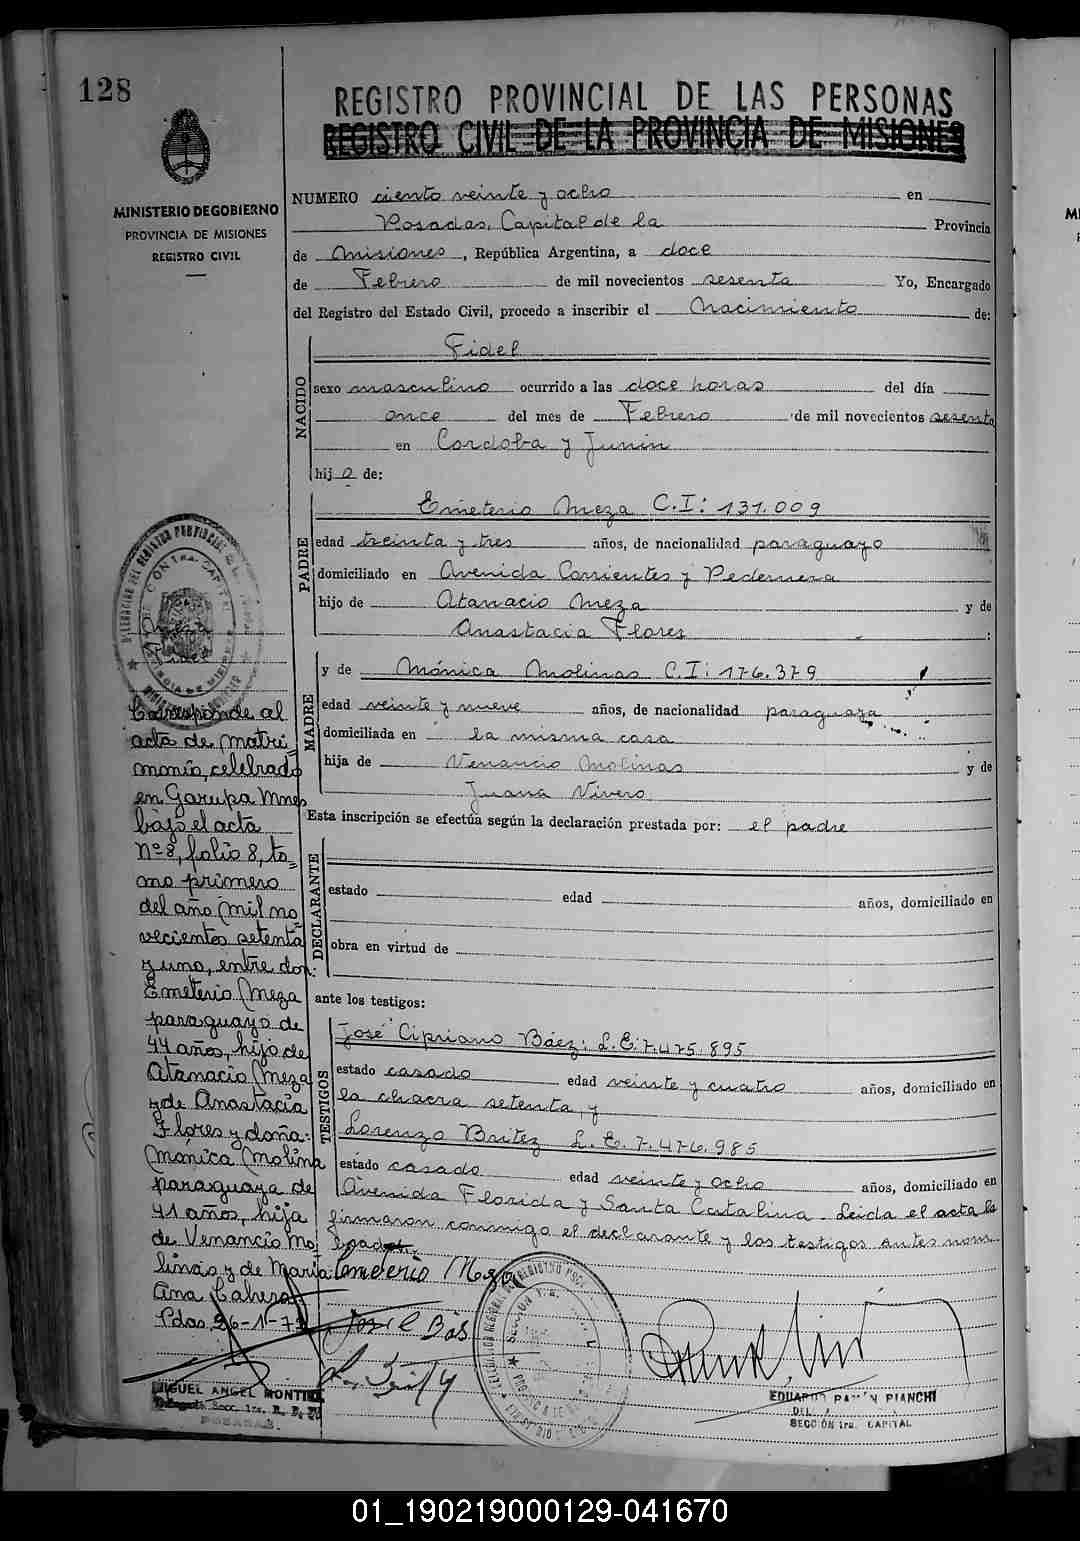 128
REGISTRO PROVINCIAL DE LAS PERSONAS
REGISTRO CIVIL DE LA PROVINCIA DE MISIONES
MINISTERIO DE GOBIERNO
PROVINCIA DE MISIONES
REGISTRO CIVIL
NUMERO ciento veinte y ocho en
Posadas, Capital de la Provincia
de Misiones, República Argentina, a doce
de Febrero de mil novecientos sesenta Yo, Encargado
del Registro del Estado Civil, procedo a inscribir el Nacimiento de:
NACIDO
Fidel
sexo masculino ocurrido a las doce horas del día
once del mes de Febrero de mil novecientos sesenta
en Cordoba y Junin
hijo de:
PADRE
Emeterio Meza C.I: 131.009
edad treinta y tres años, de nacionalidad paraguayo
domiciliado en Avenida Corrientes y Pedernera
hijo de Atanacio Meza y de
Anastacia Flores :
MADRE
y de Mónica Molinas C.I: 176.379
edad veinte y nueve años, de nacionalidad paraguaya
domiciliada en la misma casa
hija de Venancio Molinas y de
Juana Vivero
Esta inscripción se efectúa según la declaración prestada por: el padre
DECLARANTE
estado edad años, domiciliado en
obra en virtud de
ante los testigos:
TESTIGOS
José Cipriano Báez: L.E.7.475.895
estado casado edad veinte y cuatro años, domiciliado en
la chacra setenta, y
Lorenzo Britez L.E.7.476.985
estado casado edad veinte y ocho años, domiciliado en
Avenida Florida y Santa Catalina. Leida el acta la
firmaron conmigo el declarante y los testigos antes nom
brados.
Emeterio Meza
Meza
Fidel
Corresponde al
acta de matri
monio, celebrado
en Garupa Mnes
bajo el acta
nº 8, folio 8, to
mo primero
del año mil no
vecientos setenta
y uno, entre don:
Emeterio Meza
paraguayo de
44 años, hijo de
Atanacio Meza
y de Anastacia
Flores y doña:
Mónica Molina
paraguaya de
41 años, hija
de Venancio Mo
linas y de Maria
Ana Cabrera
Pdas, 26-1-72
MIGUEL ANGEL MONTIEL
Delegado Secc. 1ra. R. P.
POSADAS
EDUARDO RAMÓN PIANCHI
SECCIÓN 1ra. CAPITAL
01_190219000129-041670